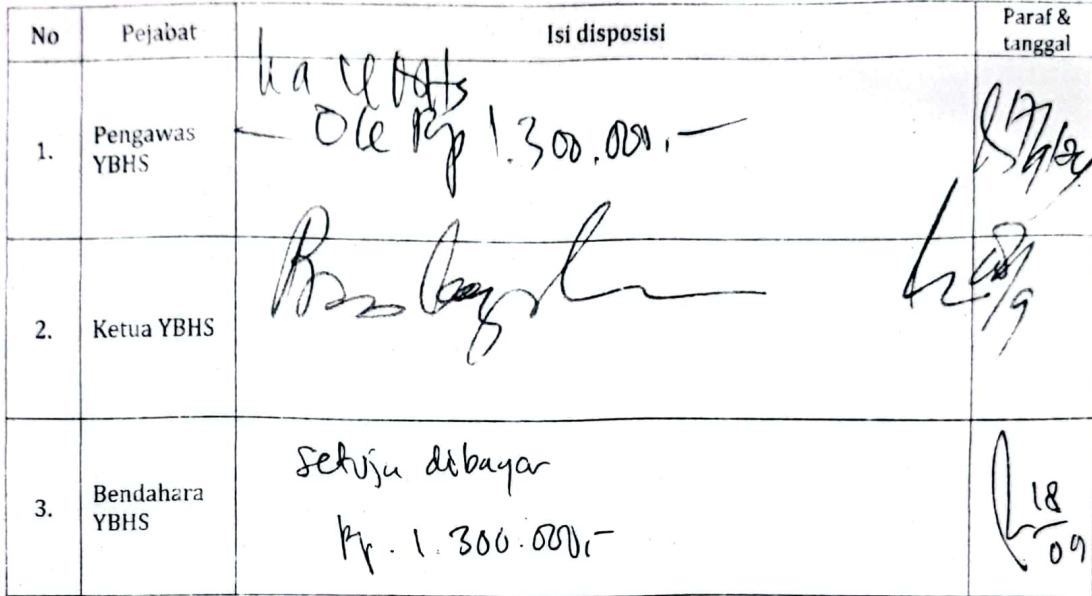 No Pejabat Isi disposisi Paraf &
tanggal
1. Pengawas
YBHS
Rp 1.300.000,-
2. Ketua YBHS
3. Bendahara
YBHS
setuju dibayar
Rp. 1.300.000,-
18
09